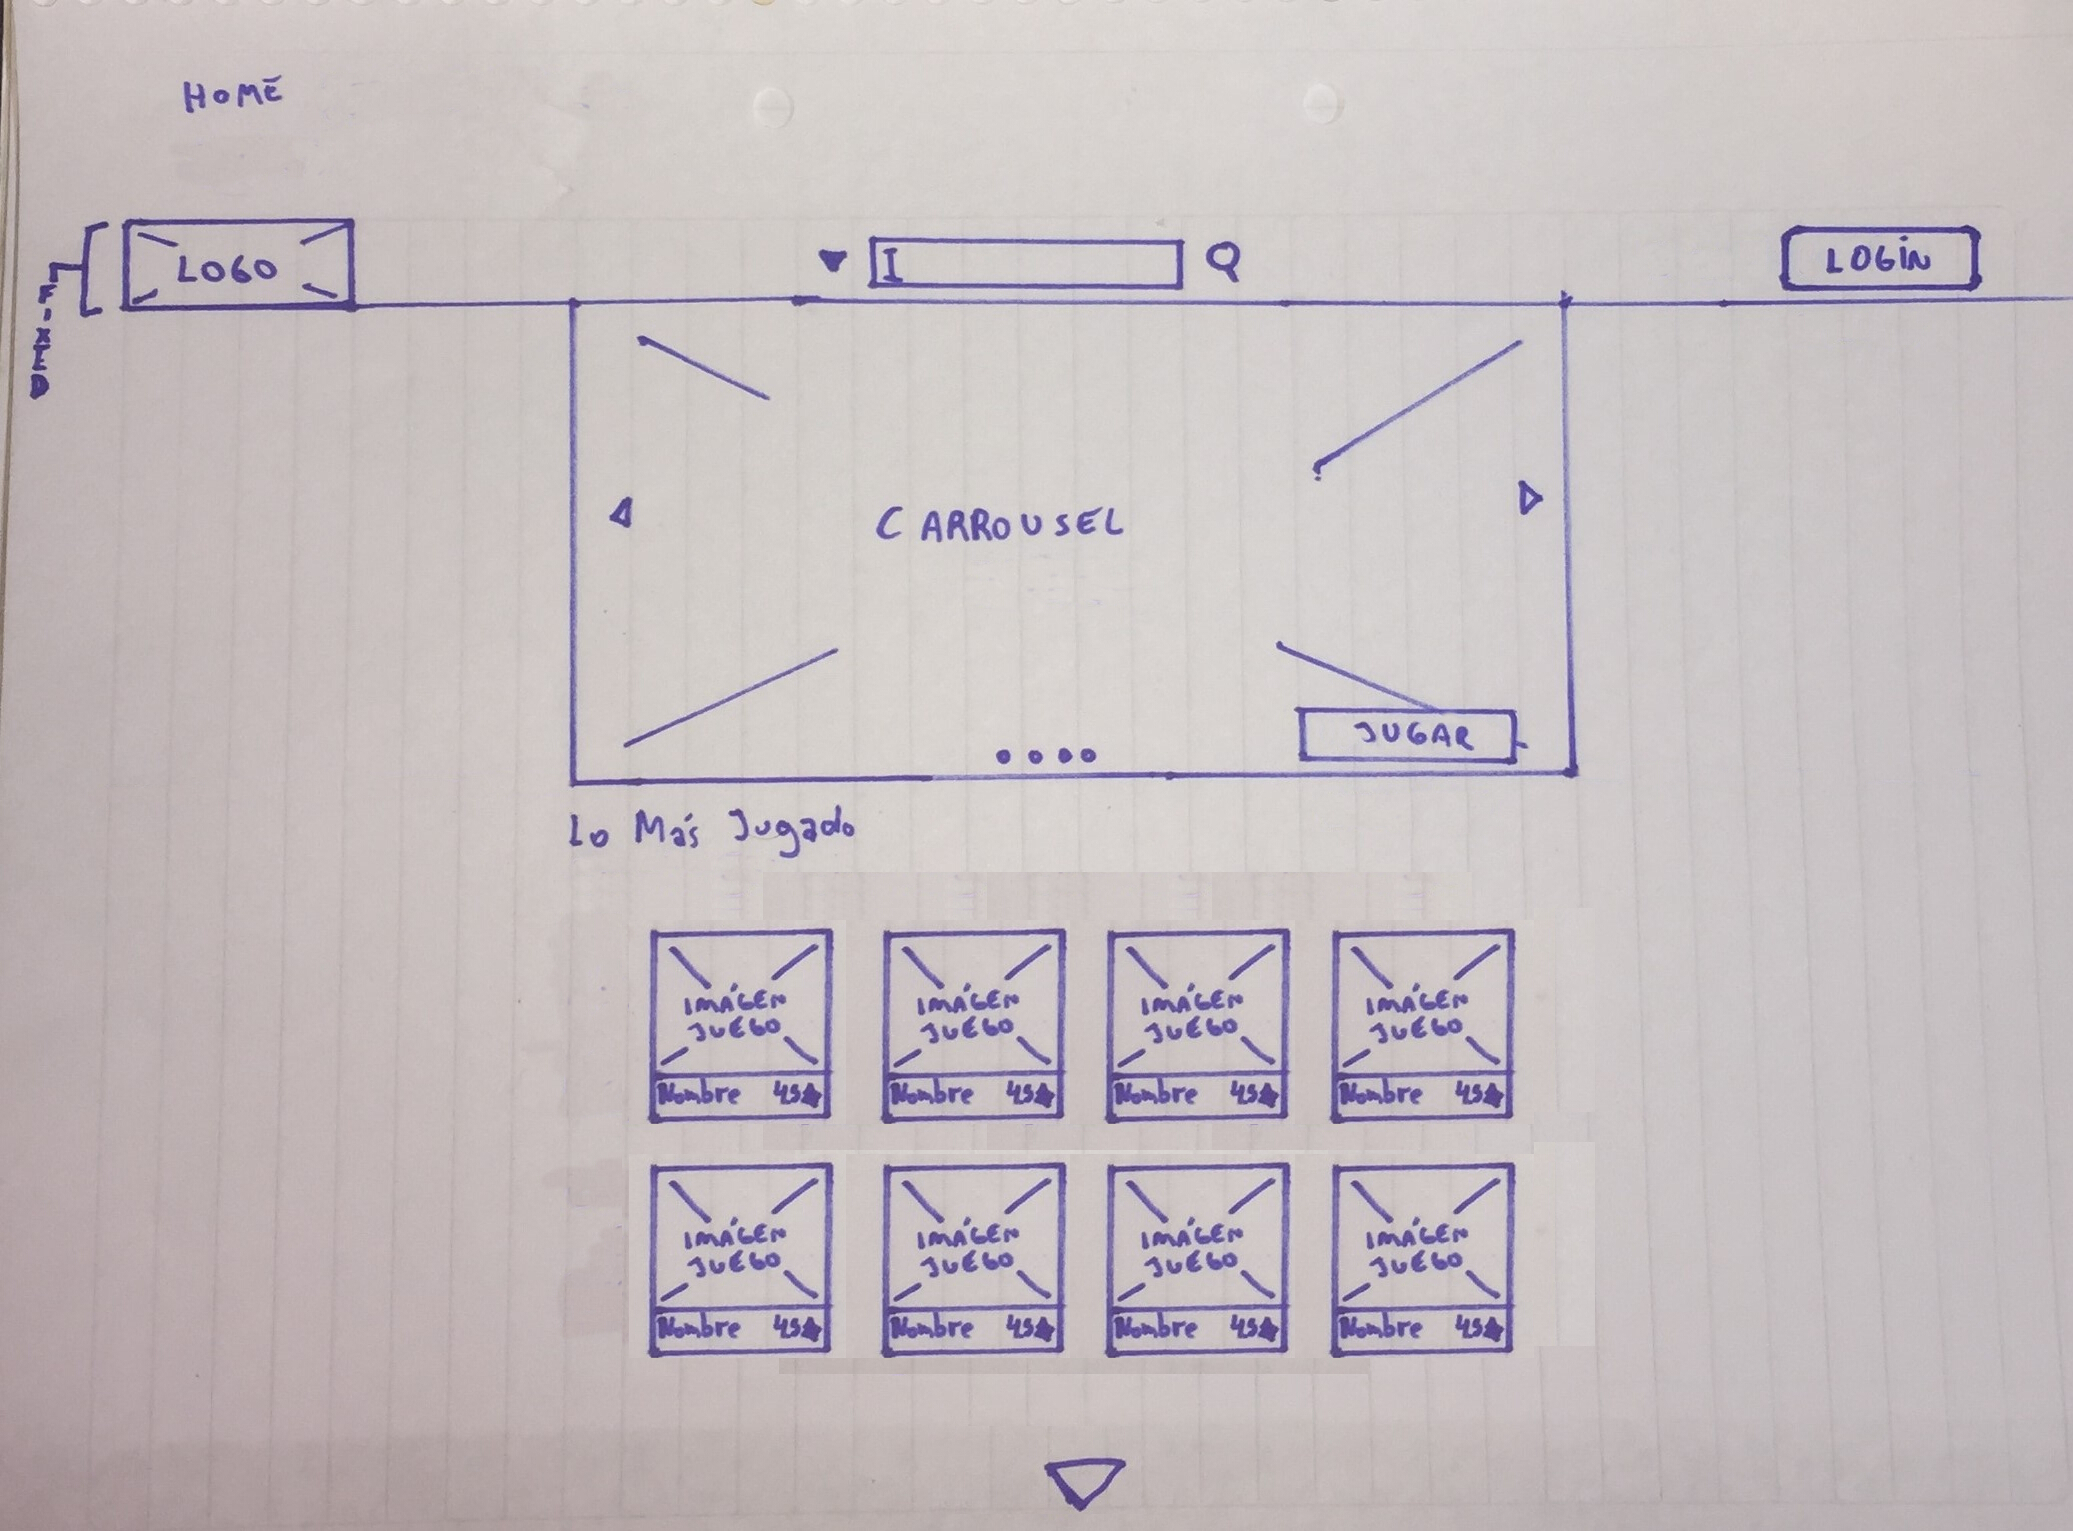 HOME
LOGO
LOGIN
FIXED
CARROUSEL
JUGAR
Lo Más Jugado
IMÁGEN
JUEGO
Nombre 45★
IMÁGEN
JUEGO
Nombre 45★
IMÁGEN
JUEGO
Nombre 45★
IMÁGEN
JUEGO
Nombre 45★
IMÁGEN
JUEGO
Nombre 45★
IMÁGEN
JUEGO
Nombre 45★
IMÁGEN
JUEGO
Nombre 45★
IMÁGEN
JUEGO
Nombre 45★